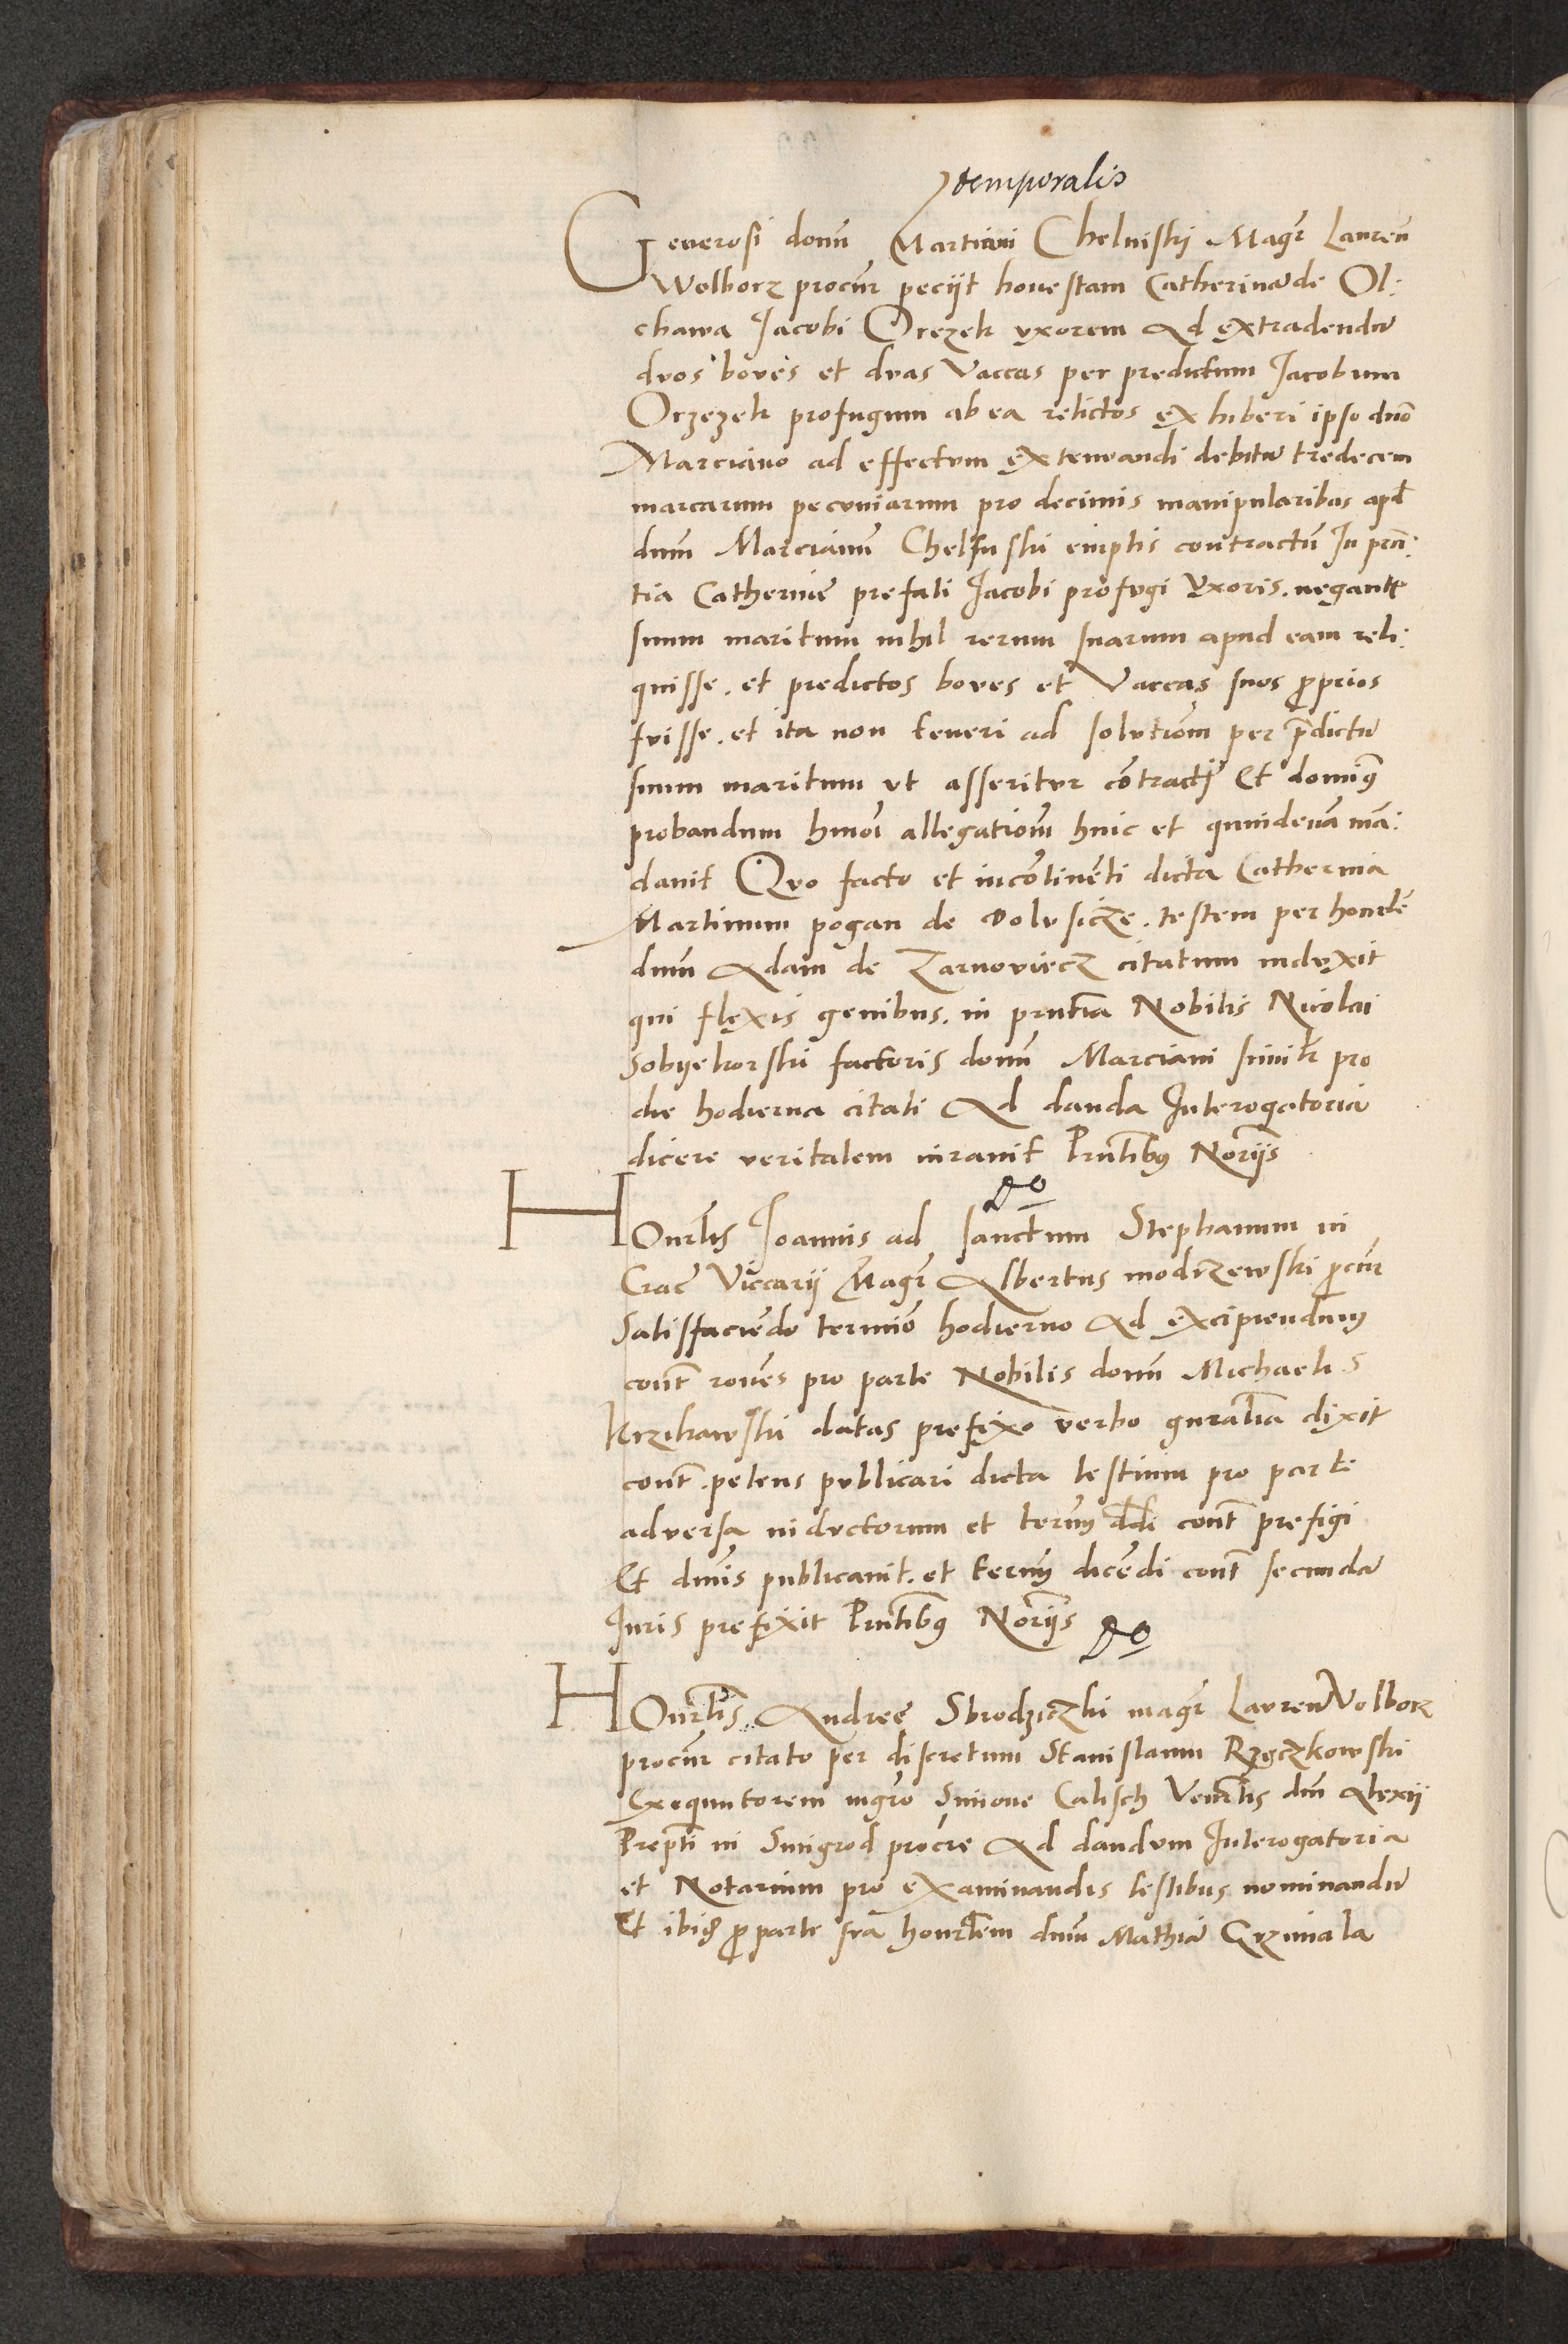 temporalis
Generosi domĩ Martiani Chelmski Magr̃ Lauren̄
Wolborz procũr peciit honestam Catherinã de Ol:
chawa Jacobi Orezek vxorem Ad extradendũ
dvos boves et dvas Vaccas per predictum Jacobum
Orzezek profugum ab ea relictos exhiberi ipso dnõ
Marciano ad effectvm extenuandi debitũ tredecem
marcarum pecvniarum pro decimis manipularibus apd̃
dnm̃ Marcianũ Chelmski emptis contractũ In prñ:
tia Catherinẽ prefati Jacobi profvgi Vxoris. negantẽ
suum maritum nihil rerum suarum apud eam reli:
quisse. et predictos boves et Vaccas suos proprios
fvisse. et ita non teneri ad solvtiom̃ per p̃dictũ
suum maritum vt asseritvr cõtracti Et domin9
probandum hmoi allegatiom̃ huic et quindenã mã:
davit Qvo facto et incõtinẽti dicta Catherina
Martinum pogan de dolvsicze. testem per honrlẽ
dnm̃ Adam de Zarnoviecz citatum indvxit
qui flexis genibus. in prntia Nobilis Nicolai
Sobyekorski factoris domĩ Marciani similr̃ pro
die hodierna citati Ad danda Interogatoria
dicere veritatem iuravit Prntib9 Norijs
HOnrlis Joannis ad sanctum Stephanum in
Crac̃ Viccarij Magr̃ Albertus modrzewski p̃cũr
Satisfaciẽdo terminõ hodierno Ad excipiendum
cont̃ rones pro parte Nobilis domĩ Michaelis
Krzikawski datas prefixo verbo gnralia dixit
cont̃. petens pvblicari dicta testium pro parte
adversa indvctorum et termĩ ddi cont̃ prefigi
Et dnũs publicavit. et termĩ dicẽdi cont̃ secundã
Juris prefixit Prntib9 Norijs
HOnrlis Andreẽ Sbrodziczki magr̃ Lavren̄ Volborz
procũr citato per discretum Stanislaum Rzęczkowski
Exequutorem mgrõ Simone Calisch Venrlis dnĩ Alexij
Prepti in Smigrod procre Ad dandvm Interogatoria
et Notarium pro examinandis testibus nominandũ
Et ibid̃ p̃ parte sva honrlem dnm̃ Mathiã Grzimala